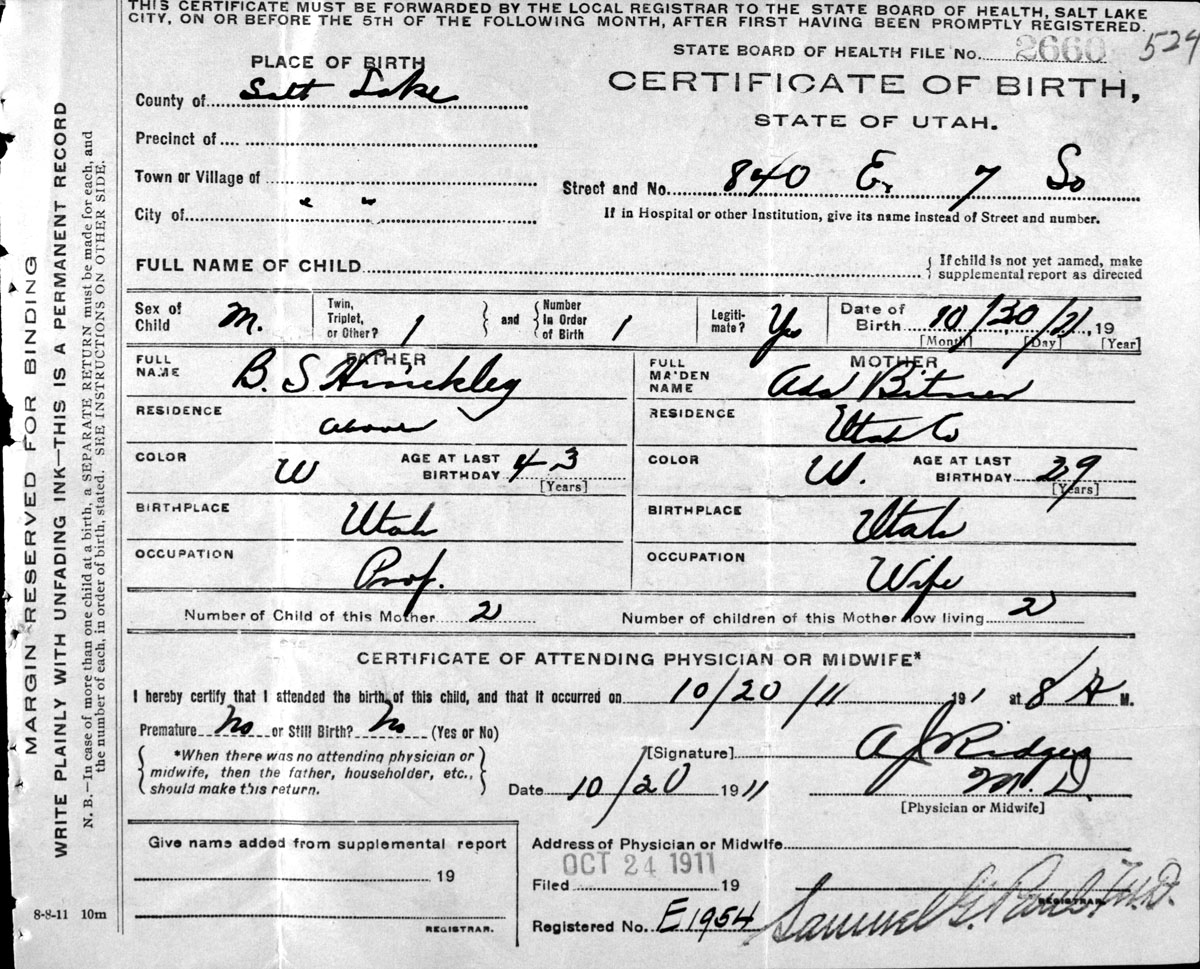 THIS CERTIFICATE MUST BE FORWARDED BY THE LOCAL REGISTRAR TO THE STATE BOARD OF HEALTH, SALT LAKE
CITY, ON OR BEFORE THE 5TH OF THE FOLLOWING MONTH, AFTER FIRST HAVING BEEN PROMPTLY REGISTERED.
STATE BOARD OF HEALTH FILE No. 2660 524
PLACE OF BIRTH
CERTIFICATE OF BIRTH,
STATE OF UTAH.
County of Salt Lake
Precinct of
Town or Village of
Street and No. 840 E. 7 So
City of " "
If in Hospital or other Institution, give its name instead of Street and number.
FULL NAME OF CHILD
If child is not yet named, make
supplemental report as directed
Sex of Child M.
Twin, Triplet, or Other? 1
and
Number In Order of Birth 1
Legiti- mate? Yes
Date of Birth 10/20/11, 19
[Month] [Day] [Year]
FATHER
FULL NAME B. S Hinckley
RESIDENCE above
COLOR W AGE AT LAST BIRTHDAY 43
[Years]
BIRTHPLACE Utah
OCCUPATION Prof.
MOTHER
FULL MAIDEN NAME Ada Bitner
RESIDENCE Utah Co
COLOR W. AGE AT LAST BIRTHDAY 29
[Years]
BIRTHPLACE Utah
OCCUPATION Wife
Number of Child of this Mother 2
Number of children of this Mother now living 2
CERTIFICATE OF ATTENDING PHYSICIAN OR MIDWIFE*
I hereby certify that I attended the birth of this child, and that it occurred on 10/20/11 191 at 8 A M.
Premature No or Still Birth? No (Yes or No)
*When there was no attending physician or
midwife, then the father, householder, etc.,
should make this return.
[Signature] A J Ridges
M. D.
Date 10/20 1911
[Physician or Midwife]
Give name added from supplemental report
19
REGISTRAR.
Address of Physician or Midwife
OCT 24 1911
Filed 19
Registered No. E1954
Samuel G. Paul M.D.
REGISTRAR.
8-8-11 10m
MARGIN RESERVED FOR BINDING
WRITE PLAINLY WITH UNFADING INK—THIS IS A PERMANENT RECORD
N. B.—In case of more than one child at a birth, a SEPARATE RETURN must be made for each, and
the number of each, in order of birth, stated. SEE INSTRUCTIONS ON OTHER SIDE.